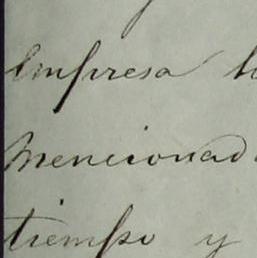 Empresa
mencionad
tiempo y